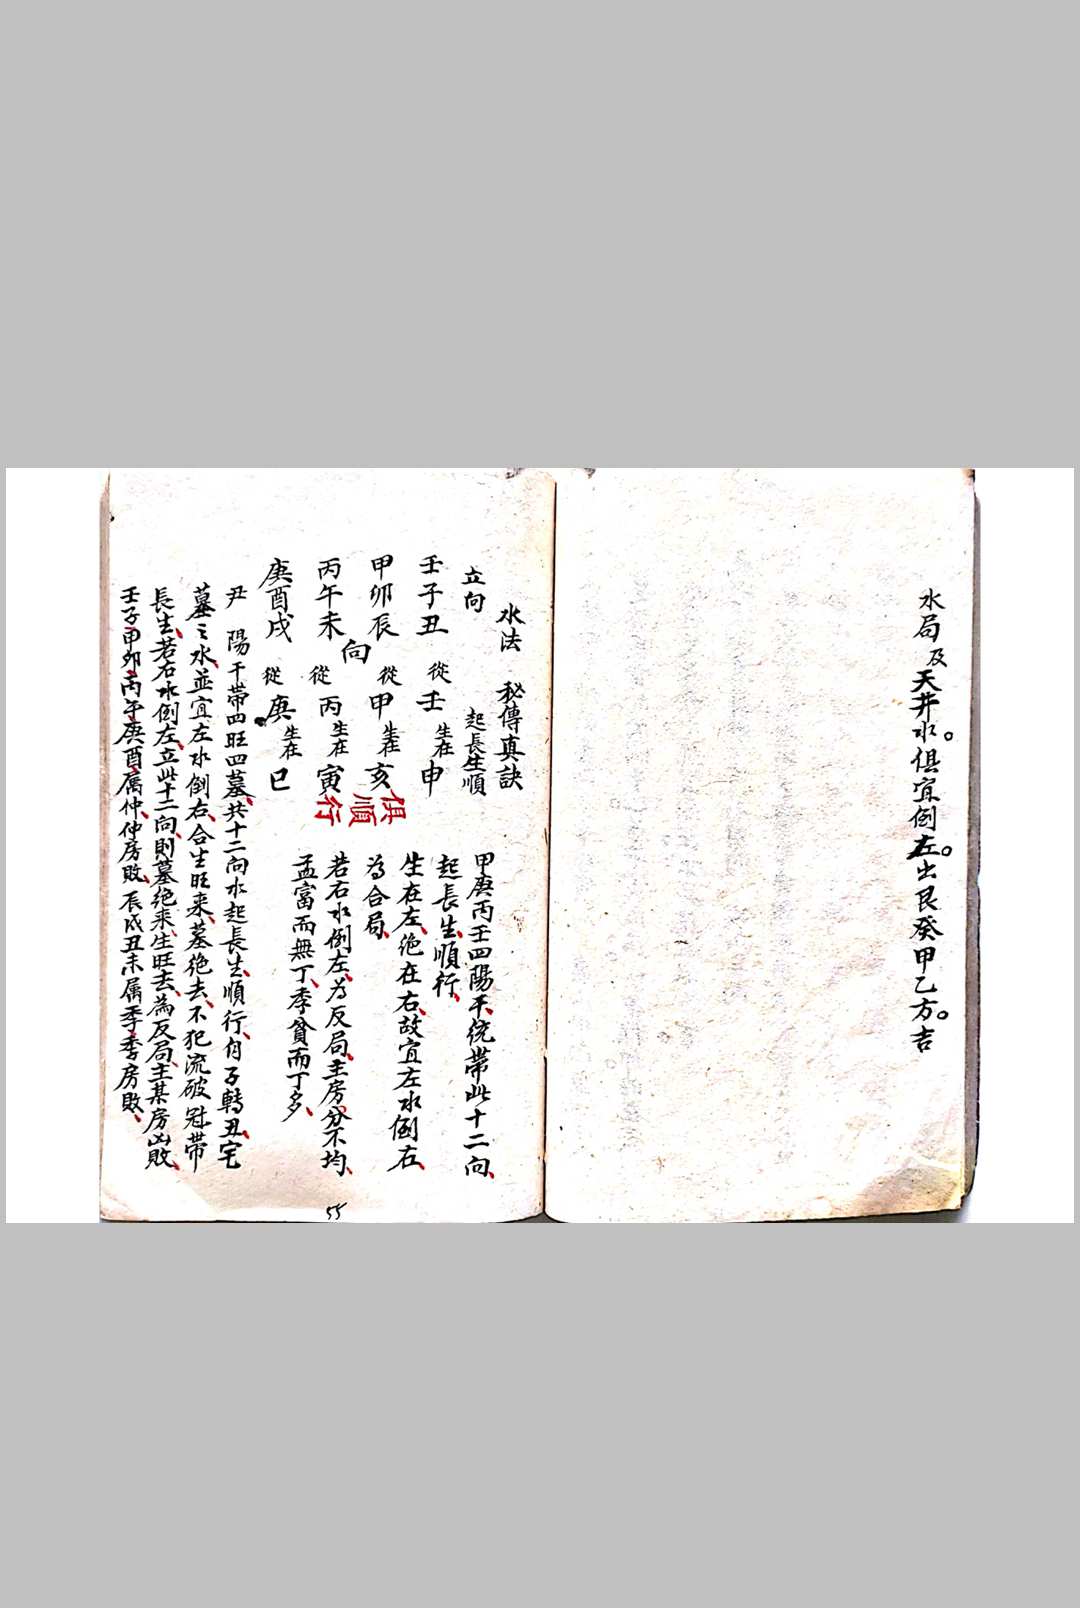 水局及天井水。俱宜倒左。出艮癸甲乙方。吉
水法　秘傳真訣
立向　起長生順
壬子丑　從壬　生在申
甲卯辰　從甲　生在亥
向
丙午未　從丙　生在寅
庚酉戌　從庚　生在巳
俱順行
甲庚丙壬四陽干、統帶此十二向、
起長生、順行、
生在左、絶在右、故宜左水倒右、
為合局、
若右水倒左、為反局、主房分不均、
孟富而無丁、季貧而丁多、
尹　陽干帶四旺四墓、共十二向水起長生、順行、自子轉丑、宅
墓之水、並宜左水倒右、合生旺來、墓絶去、不犯流破冠帶
長生、若右水倒左、立此十二向、則墓絶來、生旺去、為反局、主某房凶敗、
壬子、甲卯、丙午、庚酉、属仲、仲房敗、辰戌丑未属季、季房敗、
55